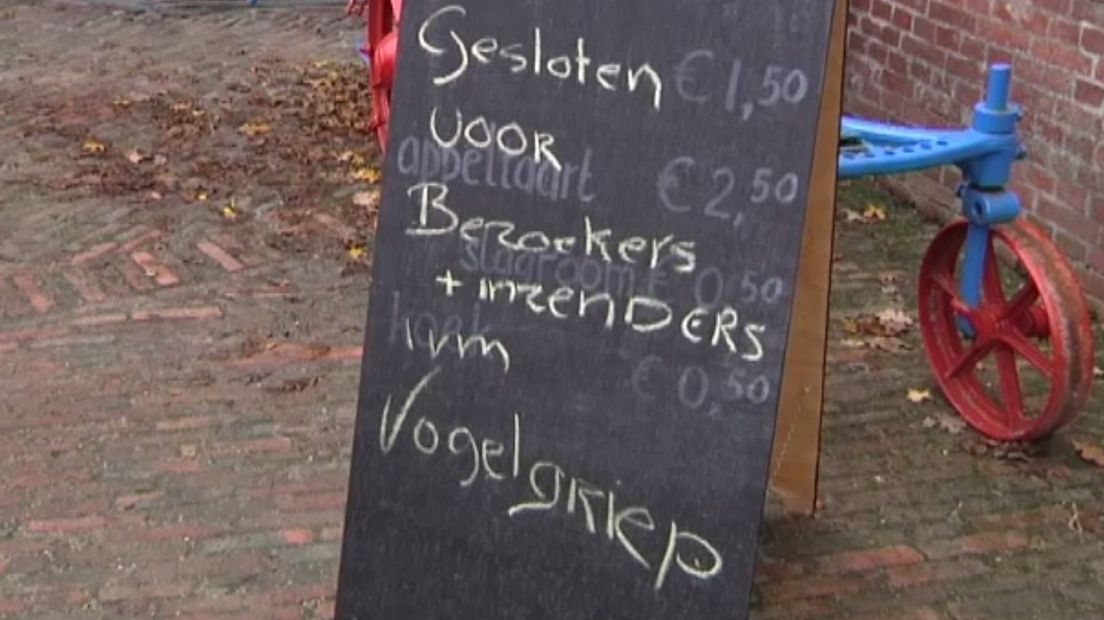 Gesloten
€ 1,50
voor
appeltaart € 2,50
Bezoekers
slagroom € 0,50
+ inzenders
ivm
€ 0,50
Vogelgriep